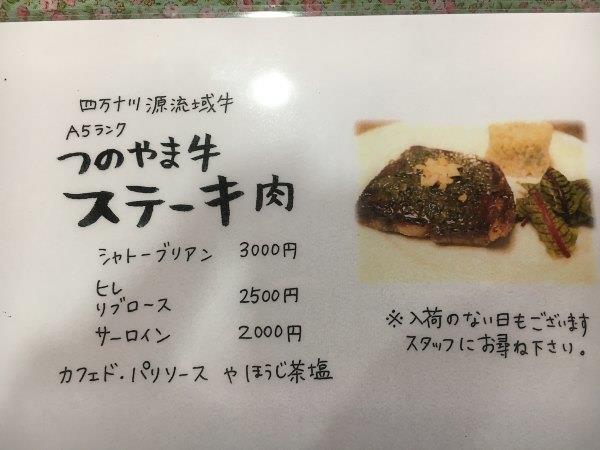 四万十川源流域牛
A5ランク
つのやま牛
ステーキ肉
シャトーブリアン 3000円
ヒレ
リブロース 2500円
サーロイン 2000円
カフェド・パリソース やほうじ茶塩
※入荷のない日もございます
スタッフにお尋ね下さい。